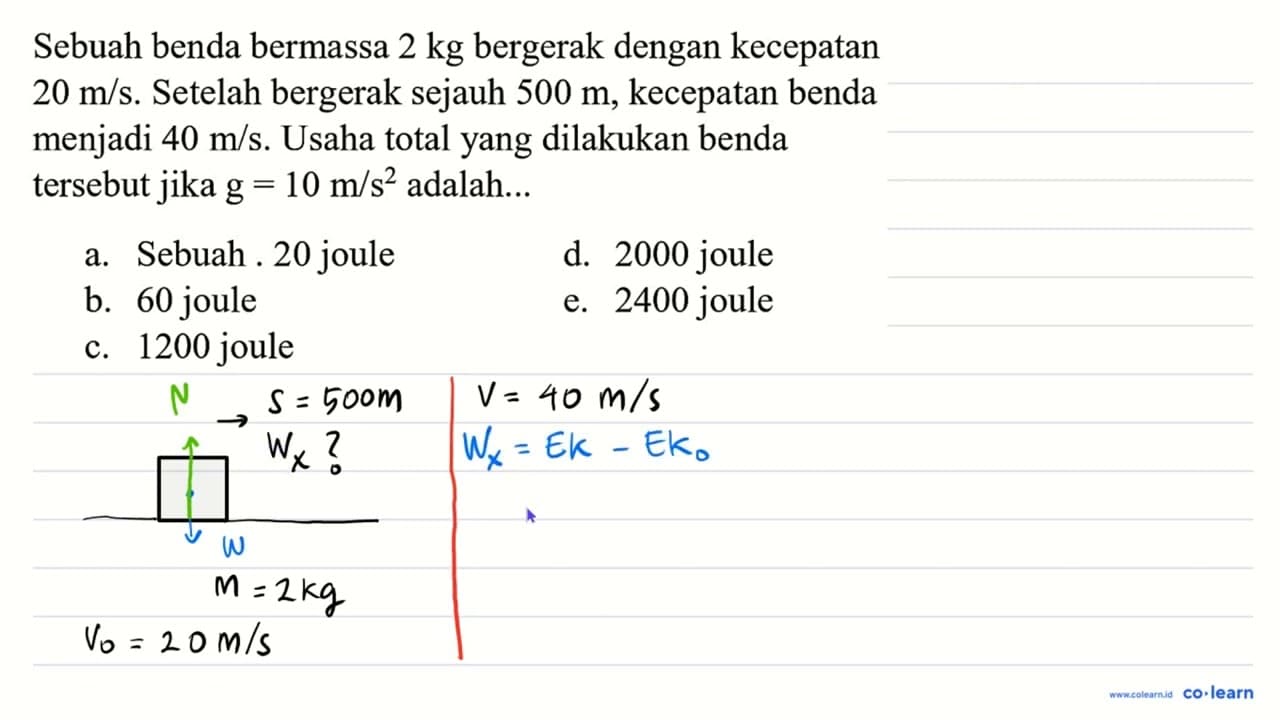 Sebuah benda bermassa 2 kg bergerak dengan kecepatan
20 m/s. Setelah bergerak sejauh 500 m, kecepatan benda
menjadi 40 m/s. Usaha total yang dilakukan benda
tersebut jika g = 10 m/s² adalah...
a. Sebuah . 20 joule
b. 60 joule
c. 1200 joule
d. 2000 joule
e. 2400 joule
N
→ S = 500m
Wx ?
W
M = 2kg
V₀ = 20 m/s
V = 40 m/s
Wx = EK - EK₀
www.colearn.id co·learn